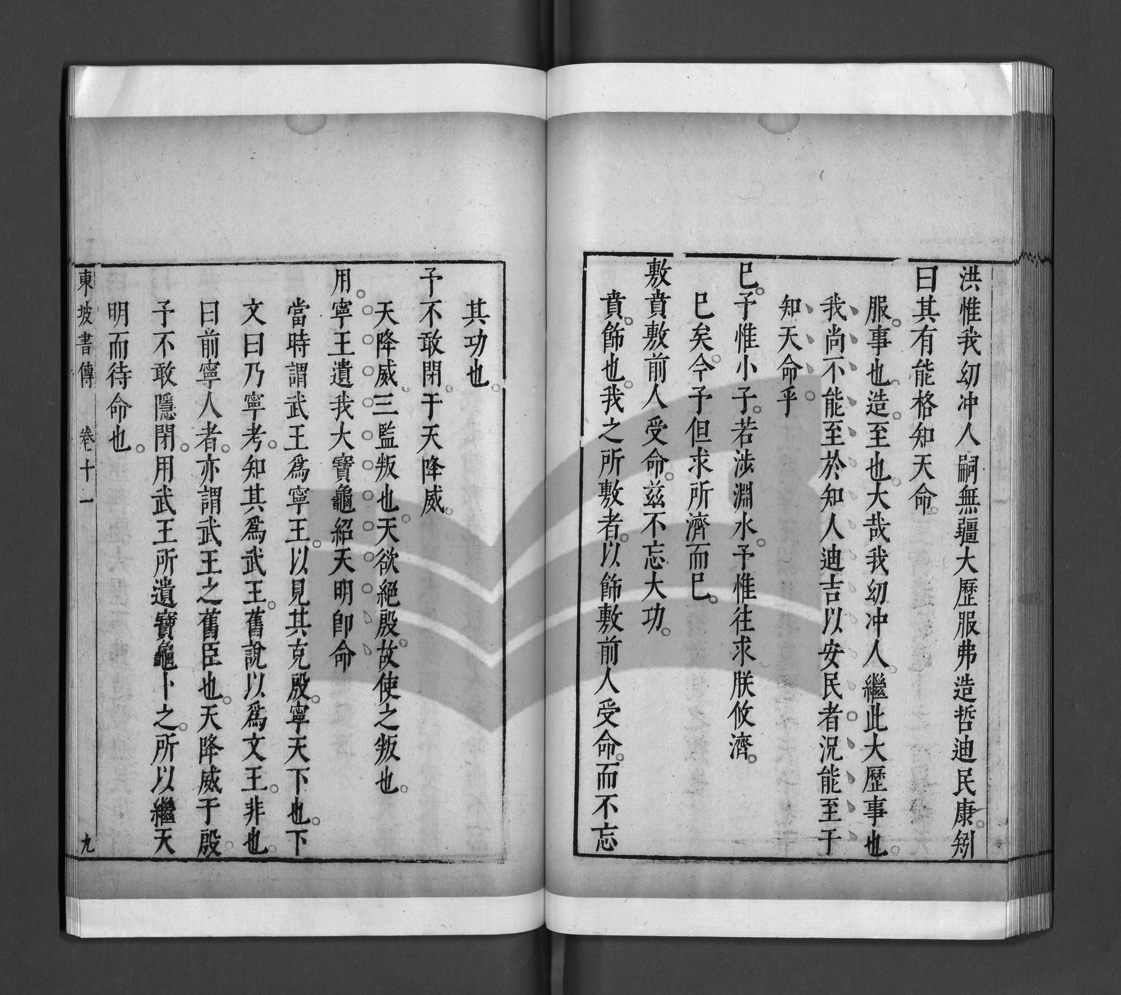 洪惟我幼冲人嗣無疆大歷服弗造哲迪民康矧
曰其有能格知天命
服事也造至也大哉我幼冲人繼此大歷事也
我尚不能至於知人迪吉以安民者況能至于
知天命乎
已予惟小子若涉淵水予惟往求朕攸濟
已矣今予但求所濟而已
敷賁敷前人受命兹不忘大功
賁飾也我之所敷者以飾敷前人受命而不忘
其功也
予不敢閉于天降威
天降威三監叛也天欲絕殷故使之叛也
用寧王遺我大寶龜紹天明卽命
當時謂武王爲寧王以見其克殷寧天下也下
文曰乃寧考知其爲武王舊說以爲文王非也
曰前寧人者亦謂武王之舊臣也天降威于殷
予不敢隱閉用武王所遺寶龜卜之所以繼天
明而待命也
東坡書傳 卷十一 九